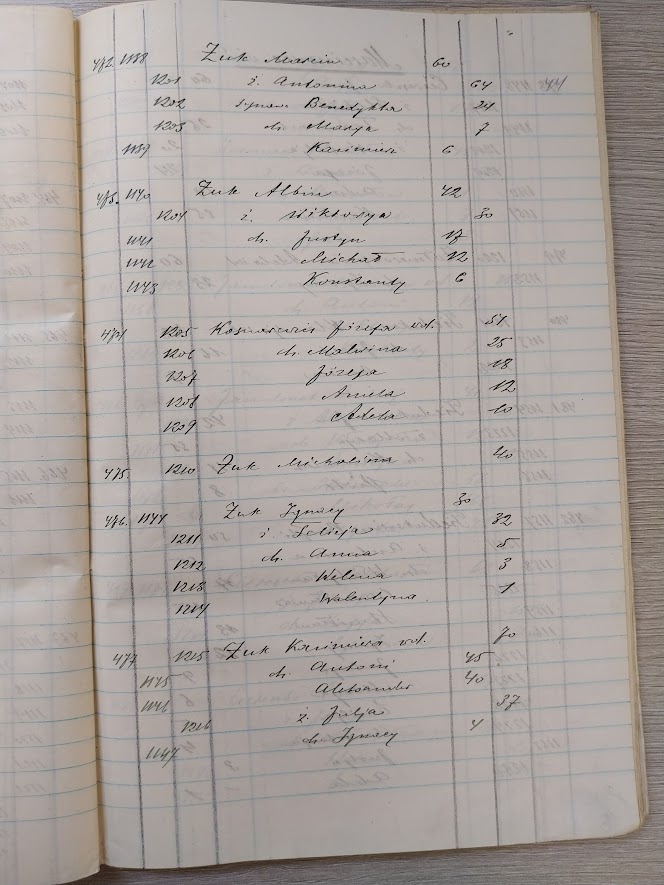 472. 1138 Żuk Marcin 60
1201 ż. Antonina 64
1202 synowa Benedykta 24
1203 ch. Marya 7
1139 Kazimierz 6
473. 1140 Żuk Albin 42
1204 ż. Wiktorya 30
1141 ch. Justyn 17
1142 Michał 12
1143 Konstanty 6
474 1205 Józefa wd. 51
1206 ch. Malwina 25
1207 Józefa 18
1208 Aniela 12
1209 Adela 10
475. 1210 Żuk Michalina 40
476. 1144 Żuk Ignacy 30
1211 ż. Felicja 32
1212 ch. Anna 5
1213 Helena 3
1214 Walentyna 1
477 1215 Żuk Kazimiera wd. 70
1145 ch. Antoni 45
1146 Aleksander 40
1216 ż. Julja 37
1147 ch. Ignacy 4